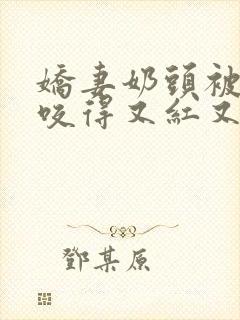 嬌妻奶頭被
咬得又紅又
鄧某原